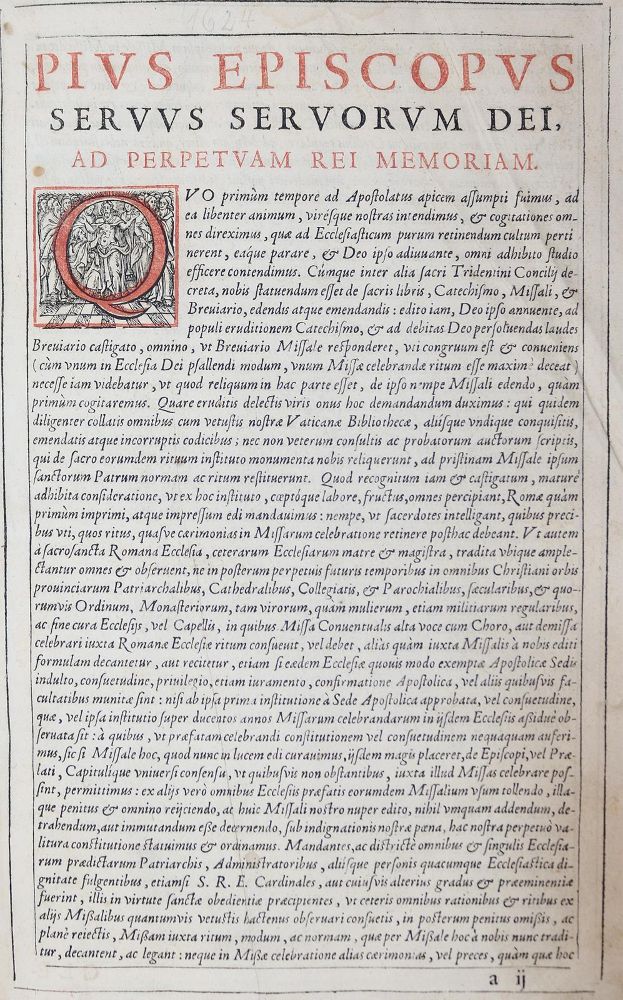 1624
PIVS EPISCOPVS
SERVVS SERVORVM DEI,
AD PERPETVAM REI MEMORIAM.
QVO primùm tempore ad Apostolatus apicem assumpti fuimus, ad
ea libenter animum, virésque nostras intendimus, & cogitationes om-
nes direximus, quæ ad Ecclesiasticum purum retinendum cultum perti
nerent, eáque parare, & Deo ipso adiuuante, omni adhibito studio
efficere contendimus. Cúmque inter alia sacri Tridentini Concilij de-
creta, nobis statuendum esset de sacris libris, Catechismo, Missali, &
Breuiario, edendis atque emendandis: edito iam, Deo ipso annuente, ad
populi eruditionem Catechismo, & ad debitas Deo persoluendas laudes
Breuiario castigato, omnino, vt Breuiario Missale responderet, vti congruum est & conueniens
(cùm vnum in Ecclesia Dei psallendi modum, vnum Missæ celebrandæ ritum esse maximè deceat)
necesse iam videbatur, vt quod reliquum in hac parte esset, de ipso nempe Missali edendo, quàm
primùm cogitaremus. Quare eruditis delectis viris onus hoc demandandum duximus: qui quidem
diligenter collatis omnibus cum vetustis nostræ Vaticanæ Bibliothecæ, aliísque vndique conquisitis,
emendatis atque incorruptis codicibus; nec non veterum consultis ac probatorum auctorum scriptis,
qui de sacro eorumdem rituum instituto monumenta nobis reliquerunt, ad pristinam Missale ipsum
sanctorum Patrum normam ac ritum restituerunt. Quod recognitum iam & castigatum, maturè
adhibita consideratione, vt ex hoc instituto, cæptóque labore, fructus, omnes percipiant, Romæ quàm
primùm imprimi, atque impressum edi mandauimus: nempe, vt sacerdotes intelligant, quibus preci-
bus vti, quos ritus, quásve cærimonias in Missarum celebratione retinere posthac debeant. Vt autem
à sacrosancta Romana Ecclesia, ceterarum Ecclesiarum matre & magistra, tradita vbique ample-
ctantur omnes & obseruent, ne in posterum perpetuis futuris temporibus in omnibus Christiani orbis
prouinciarum Patriarchalibus, Cathedralibus, Collegiatis, & Parochialibus, sæcularibus, & quo-
rumvis Ordinum, Monasteriorum, tam virorum, quàm mulierum, etiam militiarum regularibus,
ac sine cura Ecclesijs, vel Capellis, in quibus Missa Conuentualis alta voce cum Choro, aut demissa
celebrari iuxta Romanæ Ecclesiæ ritum consueuit, vel debet, aliàs quàm iuxta Missalis à nobis editi
formulam decantetur, aut recitetur, etiam si eædem Ecclesiæ quouis modo exemptæ Apostolicæ Sedis
indulto, consuetudine, priuilegio, etiam iuramento, confirmatione Apostolica, vel aliis quibusvis fa-
cultatibus munitæ sint: nisi ab ipsa prima institutione à Sede Apostolica approbata, vel consuetudine,
quæ, vel ipsa institutio super ducentos annos Missarum celebrandarum in ijsdem Ecclesiis assiduè ob-
seruata sit: à quibus, vt præfatam celebrandi constitutionem vel consuetudinem nequaquam auferi-
mus, sic si Missale hoc, quod nunc in lucem edi curauimus, ijsdem magis placeret, de Episcopi, vel Præ-
lati, Capitulique vniuersi consensu, vt quibusvis non obstantibus, iuxta illud Missas celebrare pos-
sint, permittimus: ex alijs verò omnibus Ecclesiis præfatis eorumdem Missalium vsum tollendo, illa-
que penitus & omnino reijciendo, ac huic Missali nostro nuper edito, nihil vmquam addendum, de-
trahendum, aut immutandum esse decernendo, sub indignationis nostræ pœna, hac nostra perpetuò va-
litura constitutione statuimus & ordinamus. Mandantes, ac districtè omnibus & singulis Ecclesia-
rum prædictarum Patriarchis, Administratoribus, aliísque personis quacumque Ecclesiastica di-
gnitate fulgentibus, etiamsi S. R. E. Cardinales, aut cuiusvis alterius gradus & præeminentiæ
fuerint, illis in virtute sanctæ obedientiæ præcipientes, vt ceteris omnibus rationibus & ritibus ex
alijs Missalibus quantumvis vetustis hactenus obseruari consuetis, in posterum penitus omissis, ac
planè reiectis, Missam iuxta ritum, modum, ac normam, quæ per Missale hoc à nobis nunc tradi-
tur, decantent, ac legant: neque in Missæ celebratione alias cærimonias, vel preces, quàm quæ hoc
a ij